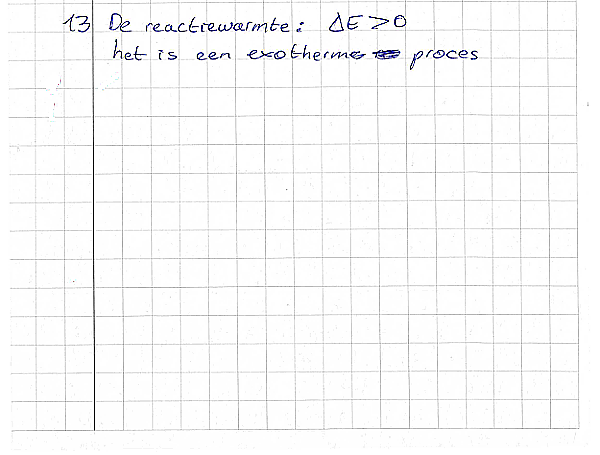 13 De reactiewarmte: ΔE > 0
het is een exotherme proces